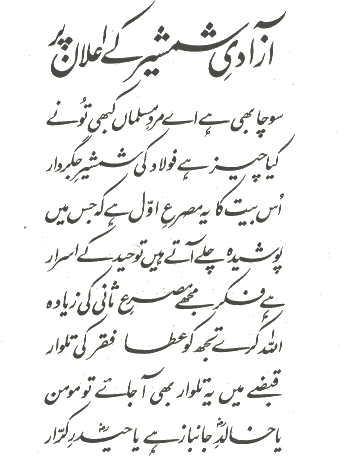 آزادیِ شمشیر کے اعلان پر
سوچا بھی ہے اے مردِ مسلماں کبھی تُو نے
کیا چیز ہے فولاد کی شمشیرِ جگردار
اُس بیت کا یہ مصرعِ اوّل ہے کہ جس میں
پوشیدہ چلے آتے ہیں توحید کے اسرار
ہے فکر مجھے مصرعِ ثانی کی زیادہ
اللہ کرے تجھ کو عطا فقر کی تلوار
قبضے میں یہ تلوار بھی آ جائے تو مومن
یا خالدِؓ جانباز ہے یا حیدرِؓ کرّار